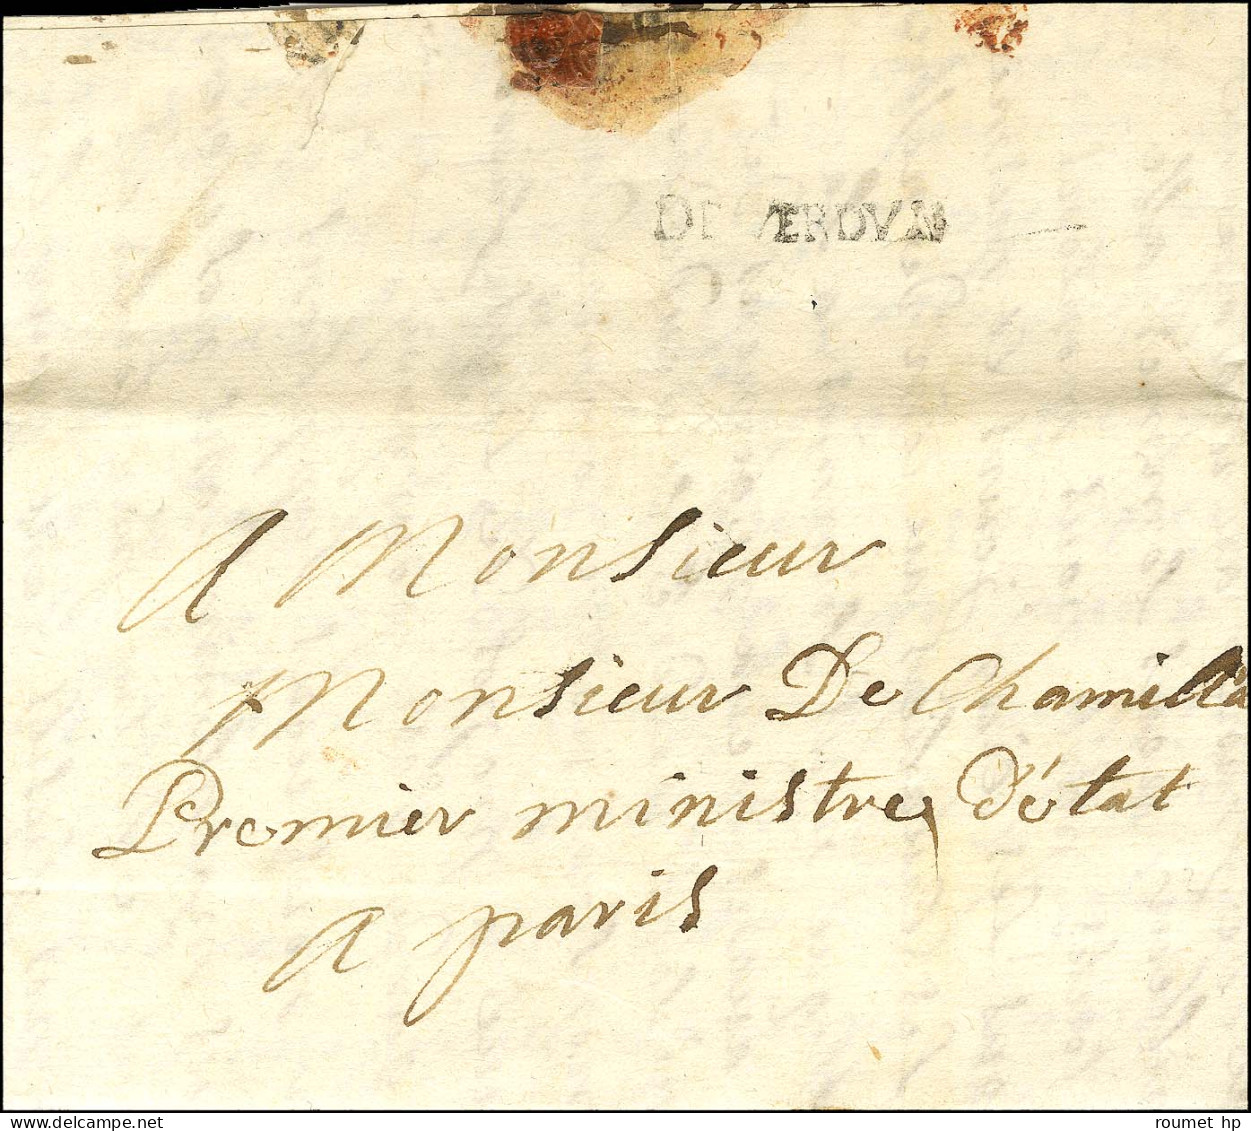 DE VERDVN
A Monsieur
Monsieur De Chamilla
Premier ministre d'état
a paris
roumet hp